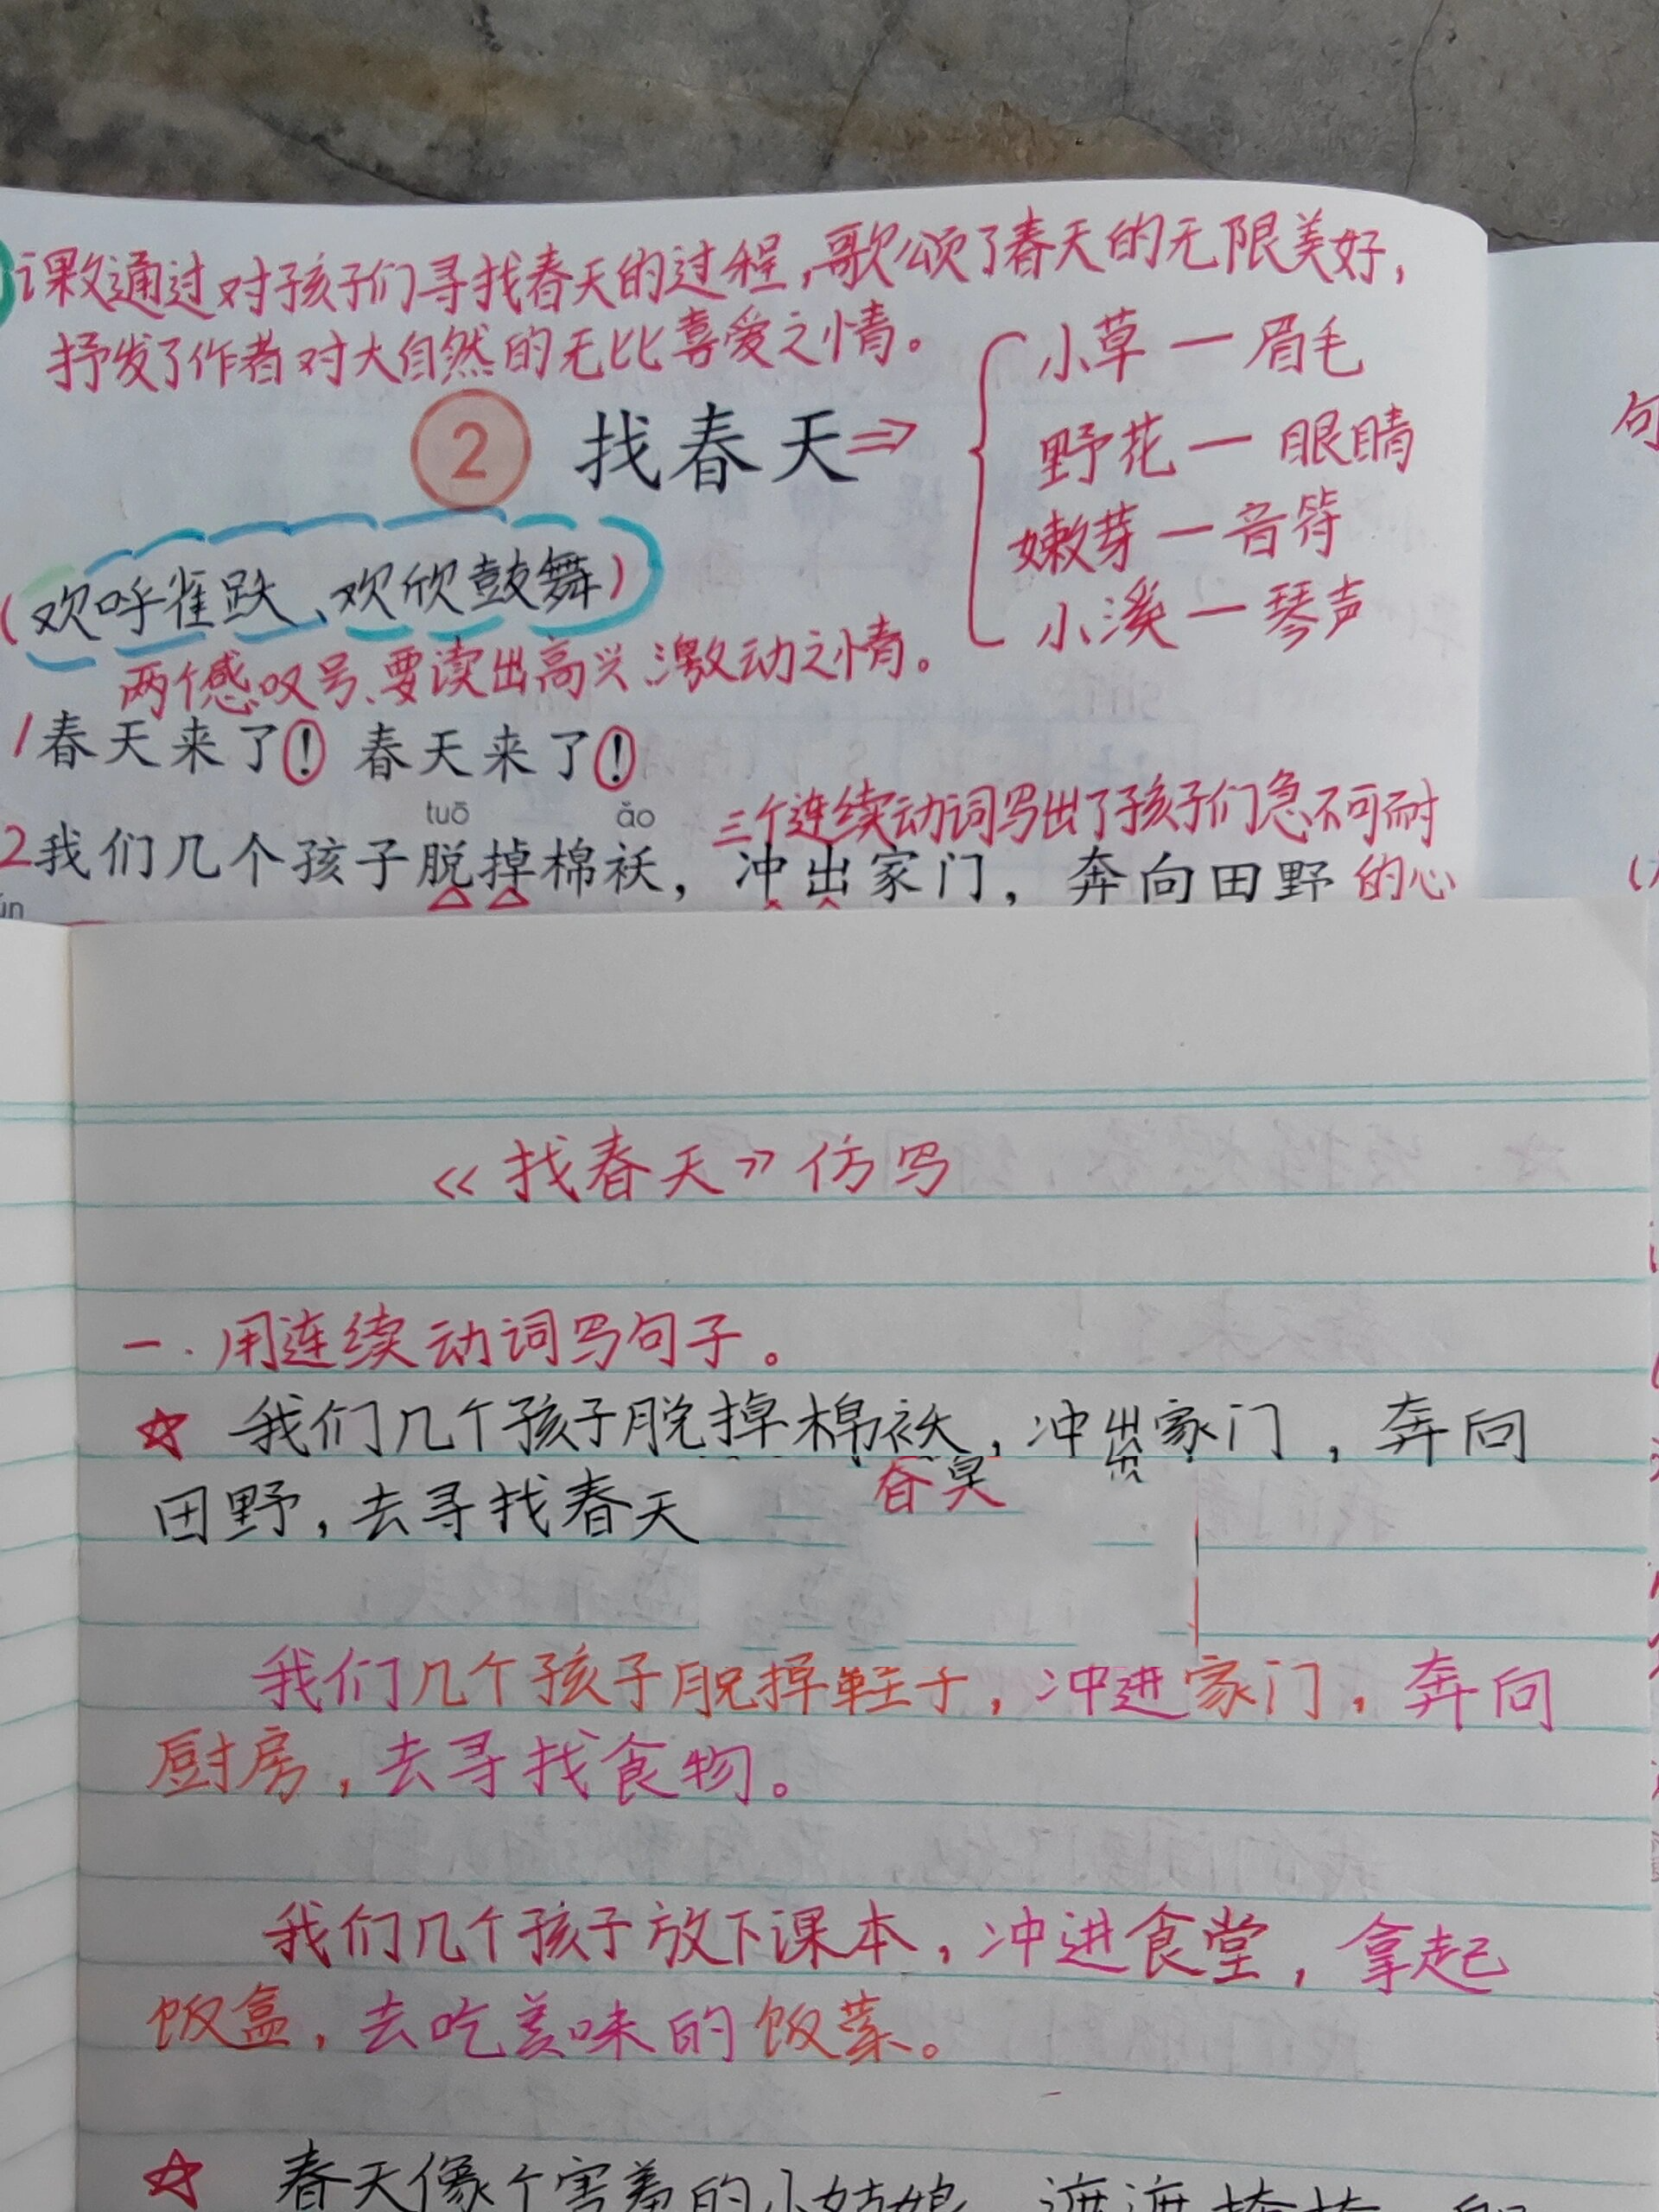 课文通过对孩子们寻找春天的过程,歌颂了春天的无限美好,
抒发了作者对大自然的无比喜爱之情。
小草一眉毛
2 找春天⇒
野花一眼睛
嫩芽一音符
小溪一琴声
(欢呼雀跃、欢欣鼓舞)
两个感叹号、要读出高兴、激动之情。
1春天来了! 春天来了!
tuō ǎo
三个连续动词写出了孩子们急不可耐
2我们几个孩子脱掉棉袄,冲出家门,奔向田野 的心
句
《找春天》仿写
一.用连续动词写句子。
☆ 我们几个孩子脱掉棉袄,冲出家门,奔向
田野,去寻找春天
我们几个孩子脱掉鞋子,冲进家门,奔向
厨房,去寻找食物。
我们几个孩子放下课本,冲进食堂,拿起
饭盒,去吃美味的饭菜。
☆ 春天像个害羞的小姑娘,遮遮掩掩,